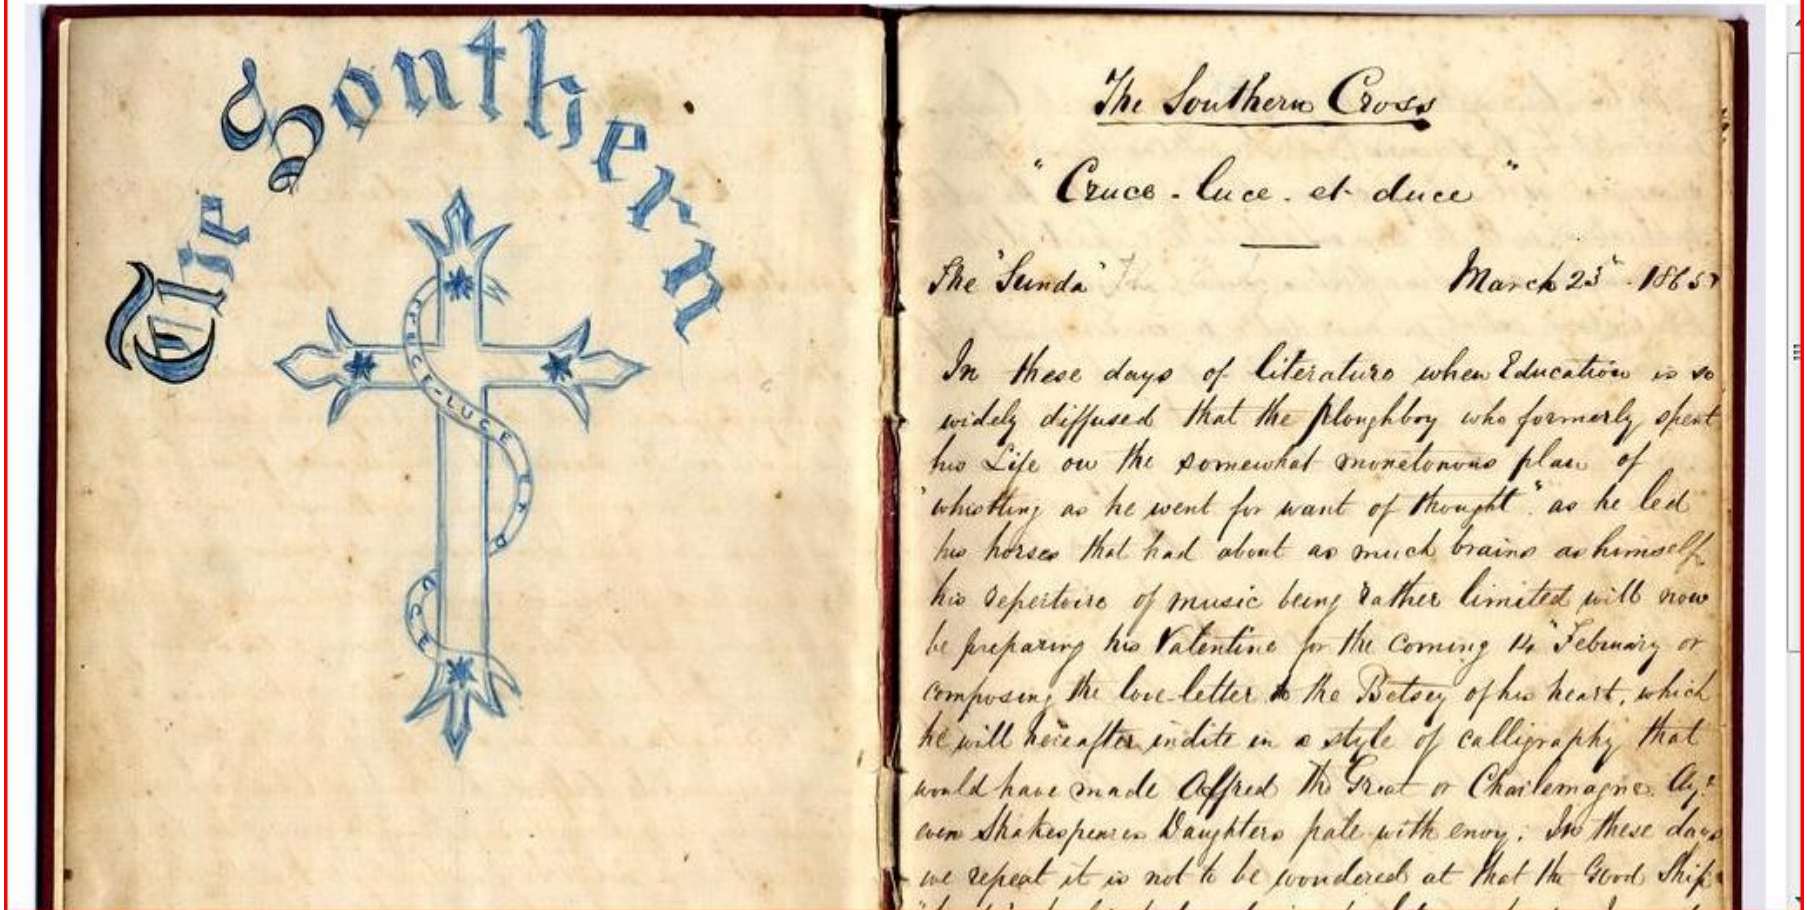 The Southern
CRUCE-LUCE ET D
UCE
The Southern Cross
"Cruce - luce - et - duce"
The "Sunda" March 25" - 1865
In these days of literature when Education is so
widely diffused that the ploughboy who formerly spent
his Life on the somewhat monotonous plan of
"whistling as he went for want of thought" as he led
his horses that had about as much brains as himself
his repertoire of music being rather limited will now
be preparing his Valentine for the coming 14" February or
composing the love-letter to the Betsey of his heart, which
he will hereafter indite in a style of calligraphy that
would have made Alfred the Great or Charlemagne Ay!
even Shakespeares Daughters pale with envy. In these days
we repeat it is not to be wondered at that the Good Ship